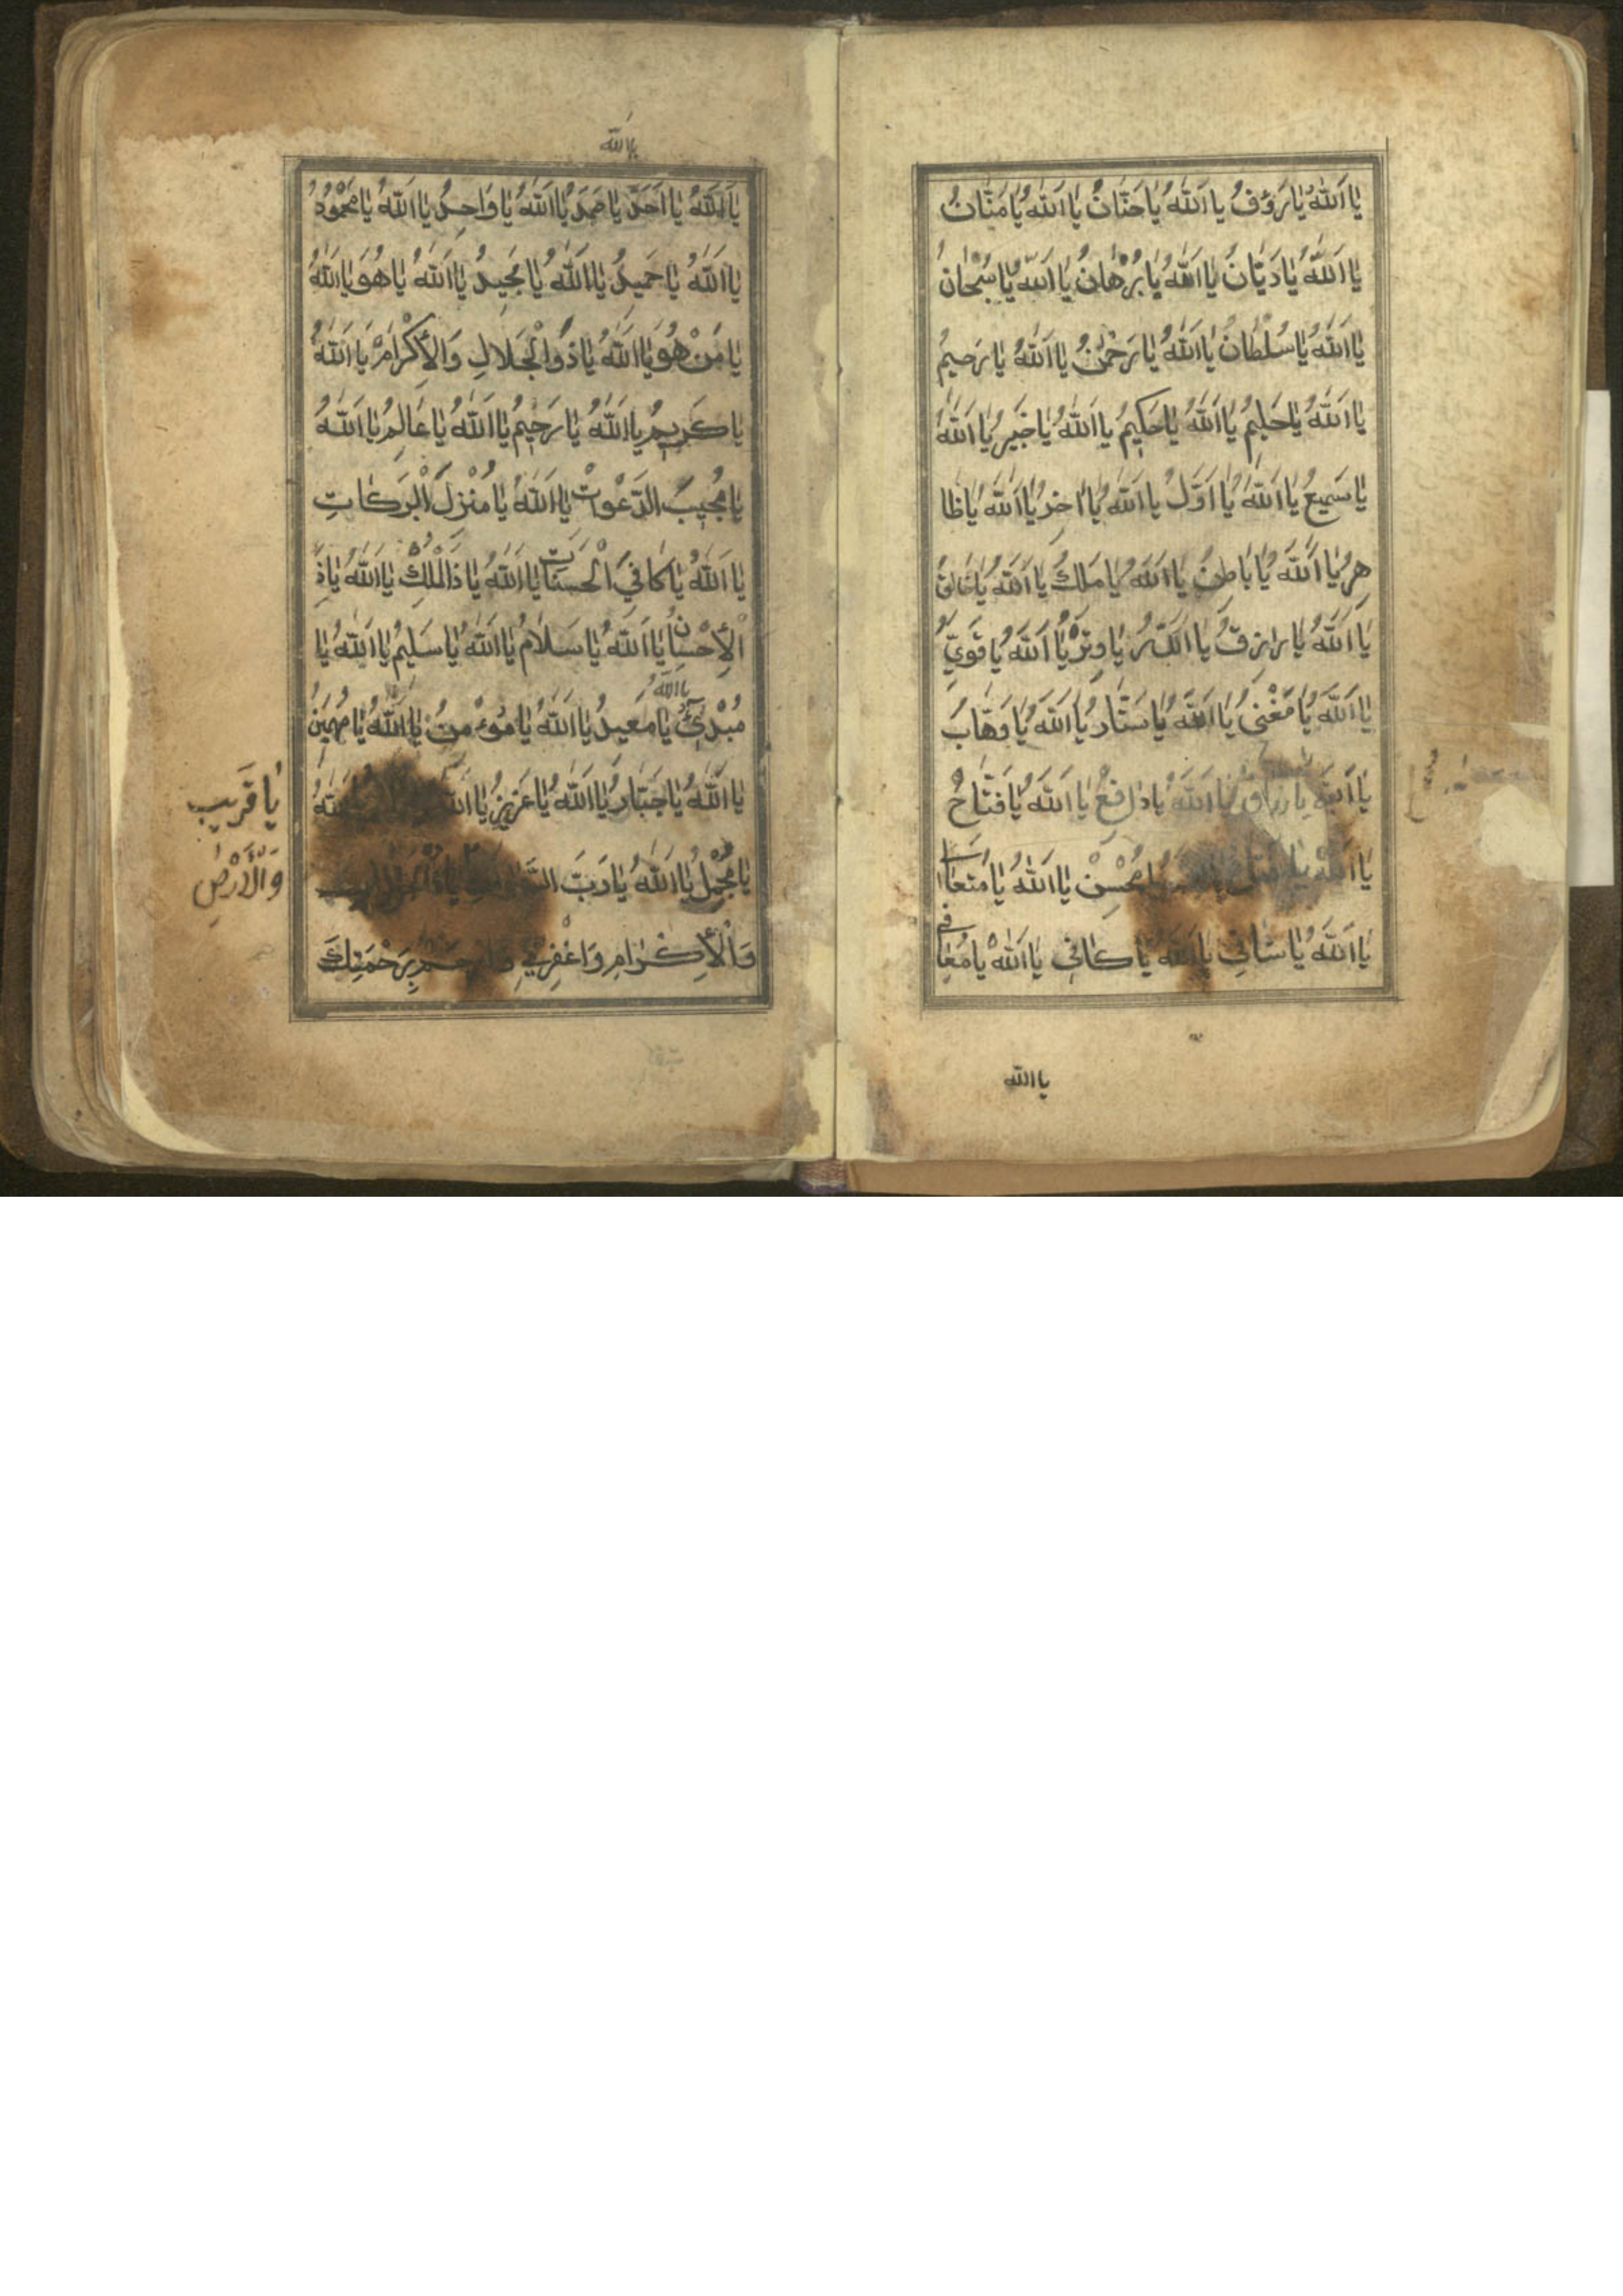 يَا اَللّٰهُ يَا رَؤُفُ يَا اَللّٰهُ يَا حَنَّانُ يَا اَللّٰهُ يَا مَنَّانُ
يَا اَللّٰهُ يَا دَيَّانُ يَا اَللّٰهُ يَا بُرْهَانُ يَا اَللّٰهُ يَا سُبْحَانُ
يَا اَللّٰهُ يَا سُلْطَانُ يَا اَللّٰهُ يَا رَحْمٰنُ يَا اَللّٰهُ يَا رَحِيمُ
يَا اَللّٰهُ يَا حَلِيمُ يَا اَللّٰهُ يَا حَكِيمُ يَا اَللّٰهُ يَا خَبِيرُ يَا اَللّٰهُ
يَا سَمِيعُ يَا اَللّٰهُ يَا اَوَّلُ يَا اَللّٰهُ يَا اٰخِرُ يَا اَللّٰهُ يَا ظَا
هِرُ يَا اَللّٰهُ يَا بَاطِنُ يَا اَللّٰهُ يَا مَلِكُ يَا اَللّٰهُ يَا خَالِقُ
يَا اَللّٰهُ يَا رَازِقُ يَا اَللّٰهُ يَا وِتْرُ يَا اَللّٰهُ يَا قَوِيُّ
يَا اَللّٰهُ يَا مُغْنِي يَا اَللّٰهُ يَا سَتَّارُ يَا اَللّٰهُ يَا وَهَّابُ
يَا اَللّٰهُ يَا رزاق يَا اَللّٰهُ يَا دَافِعُ يَا اَللّٰهُ يَا فَتَّاحُ
يَا اَللّٰهُ يَا مُحْسِنُ يَا اَللّٰهُ يَا مُتَعَا
يَا اَللّٰهُ يَا شَافِي يَا اَللّٰهُ يَا كَافِي يَا اَللّٰهُ يَا مُعَا
فِي
يا الله
يا الله
يَا اَللّٰهُ يَا اَحَدُ يَا صَمَدُ يَا اَللّٰهُ يَا وَاحِدُ يَا اَللّٰهُ يَا مَحْمُودُ
يَا اَللّٰهُ يَا حَمِيدُ يَا اَللّٰهُ يَا مَجِيدُ يَا اَللّٰهُ يَا هُوَ يَا اَللّٰهُ
يَا مَنْ هُوَ يَا اَللّٰهُ يَا ذُوالْجَلَالِ وَالْأِكْرَامِ يَا اَللّٰهُ
يَا كَرِيمُ يَا اَللّٰهُ يَا رَحِيمُ يَا اَللّٰهُ يَا عَالِمُ يَا اَللّٰهُ
يَا مُجِيبَ الدَّعْوَاتِ يَا اَللّٰهُ يَا مُنْزِلَ الْبَرَكَاتِ
يَا اَللّٰهُ يَا كَافِيَ الْحَسَنَاتِ يَا اَللّٰهُ يَا ذَالْمُلْكِ يَا اَللّٰهُ يَا ذَ
الْأِحْسَانِ يَا اَللّٰهُ يَا سَلَامُ يَا اَللّٰهُ يَا سَلِيمُ يَا اَللّٰهُ يَا
يا الله
مُبْدِئُ يَا مُعِيدُ يَا اَللّٰهُ يَا مُؤْمِنُ يَا اَللّٰهُ يَا مُهَيْمِنُ
يَا اَللّٰهُ يَا جَبَّارُ يَا اَللّٰهُ يَا عَزِيزُ يَا اَللّٰهُ
يَا مُجْمِلُ يَا اَللّٰهُ يَا رَبَّ
وَالْأِكْرَامِ وَاغْفِرْلِي وَارْحَمْ بِرَحْمَتِكَ
يَا قَرِيب
وَالْأَرْضِ